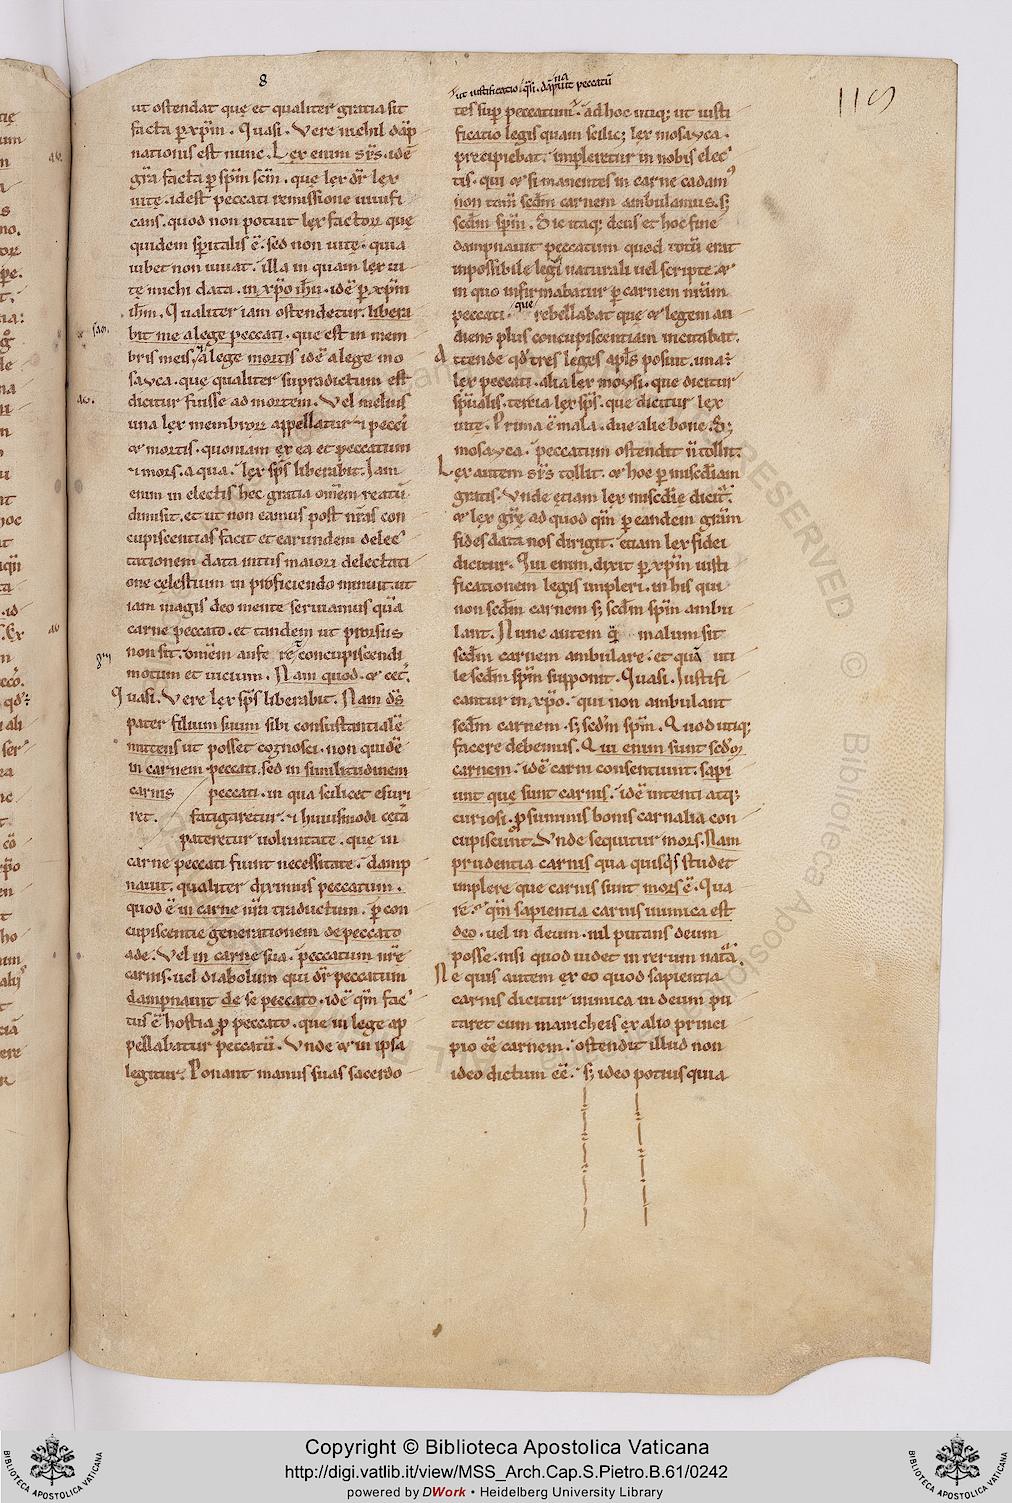 8
ut ostendat quę et qualiter gratia sit
facta p xp̄m . Quasi . Vere nichil dāp
nationis est nunc . Lex enim sp̄s . idē
gr̄a facta p sp̄m sc̄m . que lex dr̄ lex
uitę . idest peccati remissione uiuifi
cans . quod non potuit lex factorū quę
quidem sp̄italis ē . sed non uitę . quia
iubet non iuuat . illa in quam lex ui
tę michi data . in xp̄o ih̄u . idē p xp̄m
ih̄m . Qualiter iam ostendetur . libera
bit me a lege peccati . que est in mem
bris meis , & a lege mortis idē a lege mo
sayca . que qualiter supradictum est
dicitur fuisse ad mortem . Vel melius
una lex membrorū appellatur & pecc̄i
& mortis . quoniam ex ea et peccatum
& mors . a qua . lex sp̄s liberabit . Iam
enim in electis hec gratia om̄em reatū
dimisit . et ut non eamus post nr̄as con
cupiscentias facit et earundem delec
tationem data intus maiori delectati
one cęlestium in proficiendo minuit . ut
iam magis deo mente seruiamus quā
carne peccato . et tandem ut prorsus
non sit . om̄em aufe ret concupiscendi
motum et uicium . Nam quod . & cet̄
Quasi . Vere lex sp̄s liberabit . Nam d̄s
pater filium suum sibi consustantialē
mittens ut posset cognosci . non quidē
in carnem peccati . sed in similitudinem
carnis peccati . in qua scilicet esuri
ret . fatigaretur . & huiusmodi cet̄a
pateretur uoluntate . que in
carne peccati fiunt necessitate . damp
nauit . qualiter diximus peccatum .
quod ē in carne nr̄a traductum . p con
cupiscentie generationem de peccato
ade . Vel in carne sua . peccatum nr̄e
carnis . uel diabolum qui dr̄ peccatum
dampnauit de se peccato . idē qm̄ fac
tus ē hostia p peccato . que in lege ap
pellabatur peccatū . Vnde & in ipsa
legitur . Ponant manus suas sacerdo
ut iustificatio qsi . dāpnauit peccatū
tes sup peccatum . ad hoc utiq; ut iusti
ficatio legis quam scilic; lex mosayca .
precipiebat . impleretur in nobis elec
tis . qui & si manentes in carne eadam
non tam̄ scd̄m carnem ambulamus . s;
scd̄m sp̄m . Sic itaq; deus et hoc fine
dampnauit peccatum quod totū erat
inpossibile legi naturali uel scripte . &
in quo infirmabatur p carnem nr̄am
peccati . que rebellabat que & legem au
diens plus concupiscentiam incitabat .
Attende qd̄ tres leges apl̄s posuit . una
lex peccati . alia lex moysi . que dicitur
sp̄ualis . tertia lex sp̄s . que dicitur lex
uitę . Prima ē mala . due alie bone . S;
mosayca . peccatum ostendit n̄ tollit .
Lex autem sp̄s tollit . & hoc p misc̄diam
gratis . Vnde etiam lex misc̄dię dicit̄ .
& lex gr̄ę ad quod qm̄ p eandem gr̄am
fides data nos dirigit . etiam lex fidei
dicitur . Qui enim dixit p xp̄m iusti
ficationem legis impleri . in his qui
non scd̄m carnem s; scd̄m sp̄m ambu
lant . Nunc autem q̄ malum sit
scd̄m carnem ambulare . et quā uti
le scd̄m sp̄m supponit . Quasi . Iustifi
cantur in xp̄o . qui non ambulant
scd̄m carnem . s; scd̄m sp̄m . Quod utiq;
facere debemus . Qui enim sunt scd̄m
carnem . idē carni consentiunt . sapi
unt que sunt carnis . idē intenti atq;
curiosi . p summis bonis carnalia con
cupiscunt . Vnde sequitur mors . Nam
prudentia carnis qua quisq̄s studet
implere que carnis sunt mors ē . Qua
re . qm̄ sapientia carnis inimica est
deo . uel in deum . nil putans deum
posse . nisi quod uidet in rerum nat̄a .
Ne quis autem ex eo quod sapientia
carnis dicitur inimica in deum pu
taret cum manicheis ex alio princi
pio ēē carnem . ostendit illud non
ideo dictum ēē . s; ideo potius quia
119
Copyright © Biblioteca Apostolica Vaticana
http://digi.vatlib.it/view/MSS_Arch.Cap.S.Pietro.B.61/0242
powered by DWork • Heidelberg University Library
BIBLIOTECA APOSTOLICA VATICANA
BIBLIOTECA APOSTOLICA VATICANA